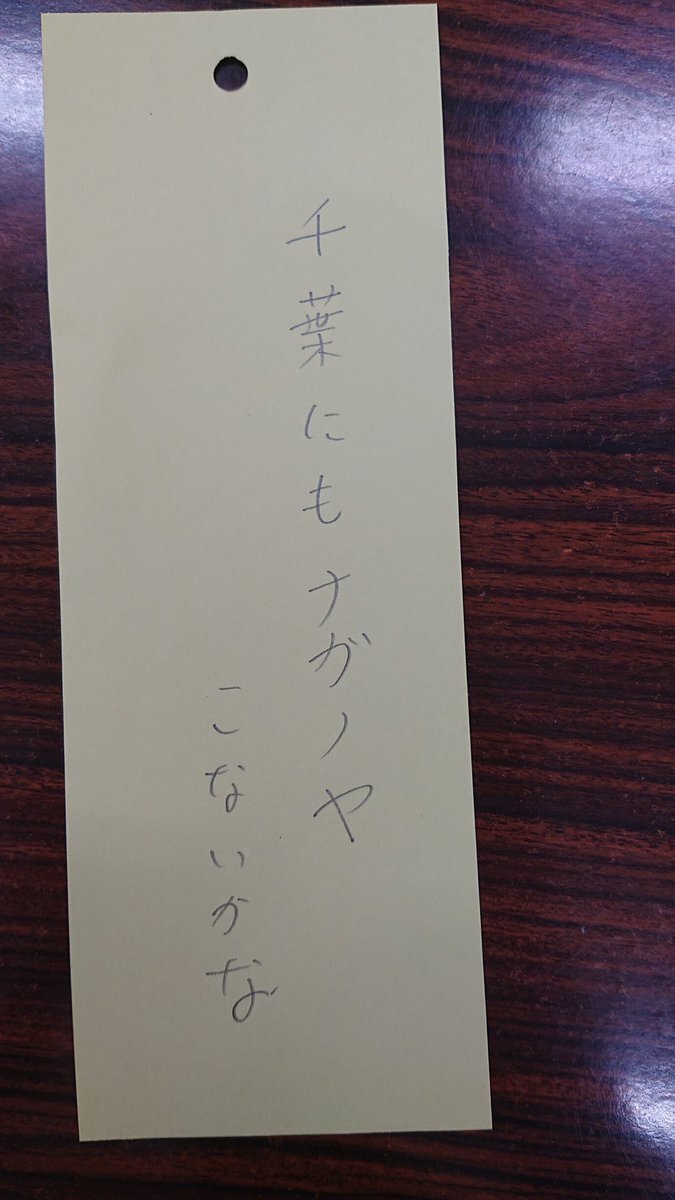 千葉にもナガノヤ
こないかな